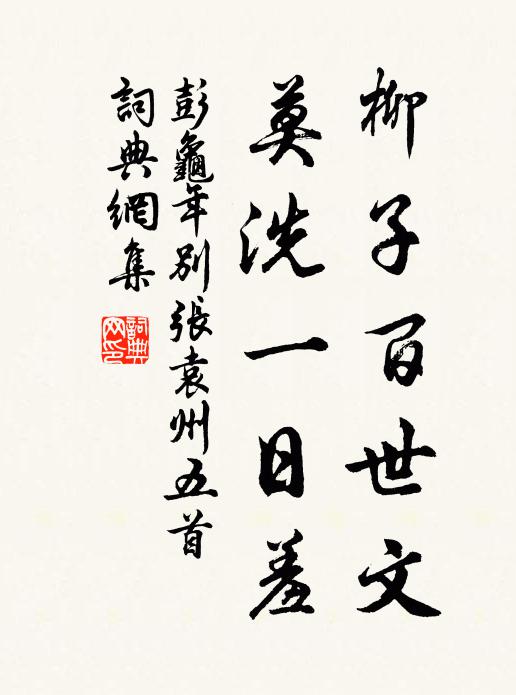 柳子百世文
莫洗一日羞
彭龜年別張袁州五首
詞典網集
詞典网印